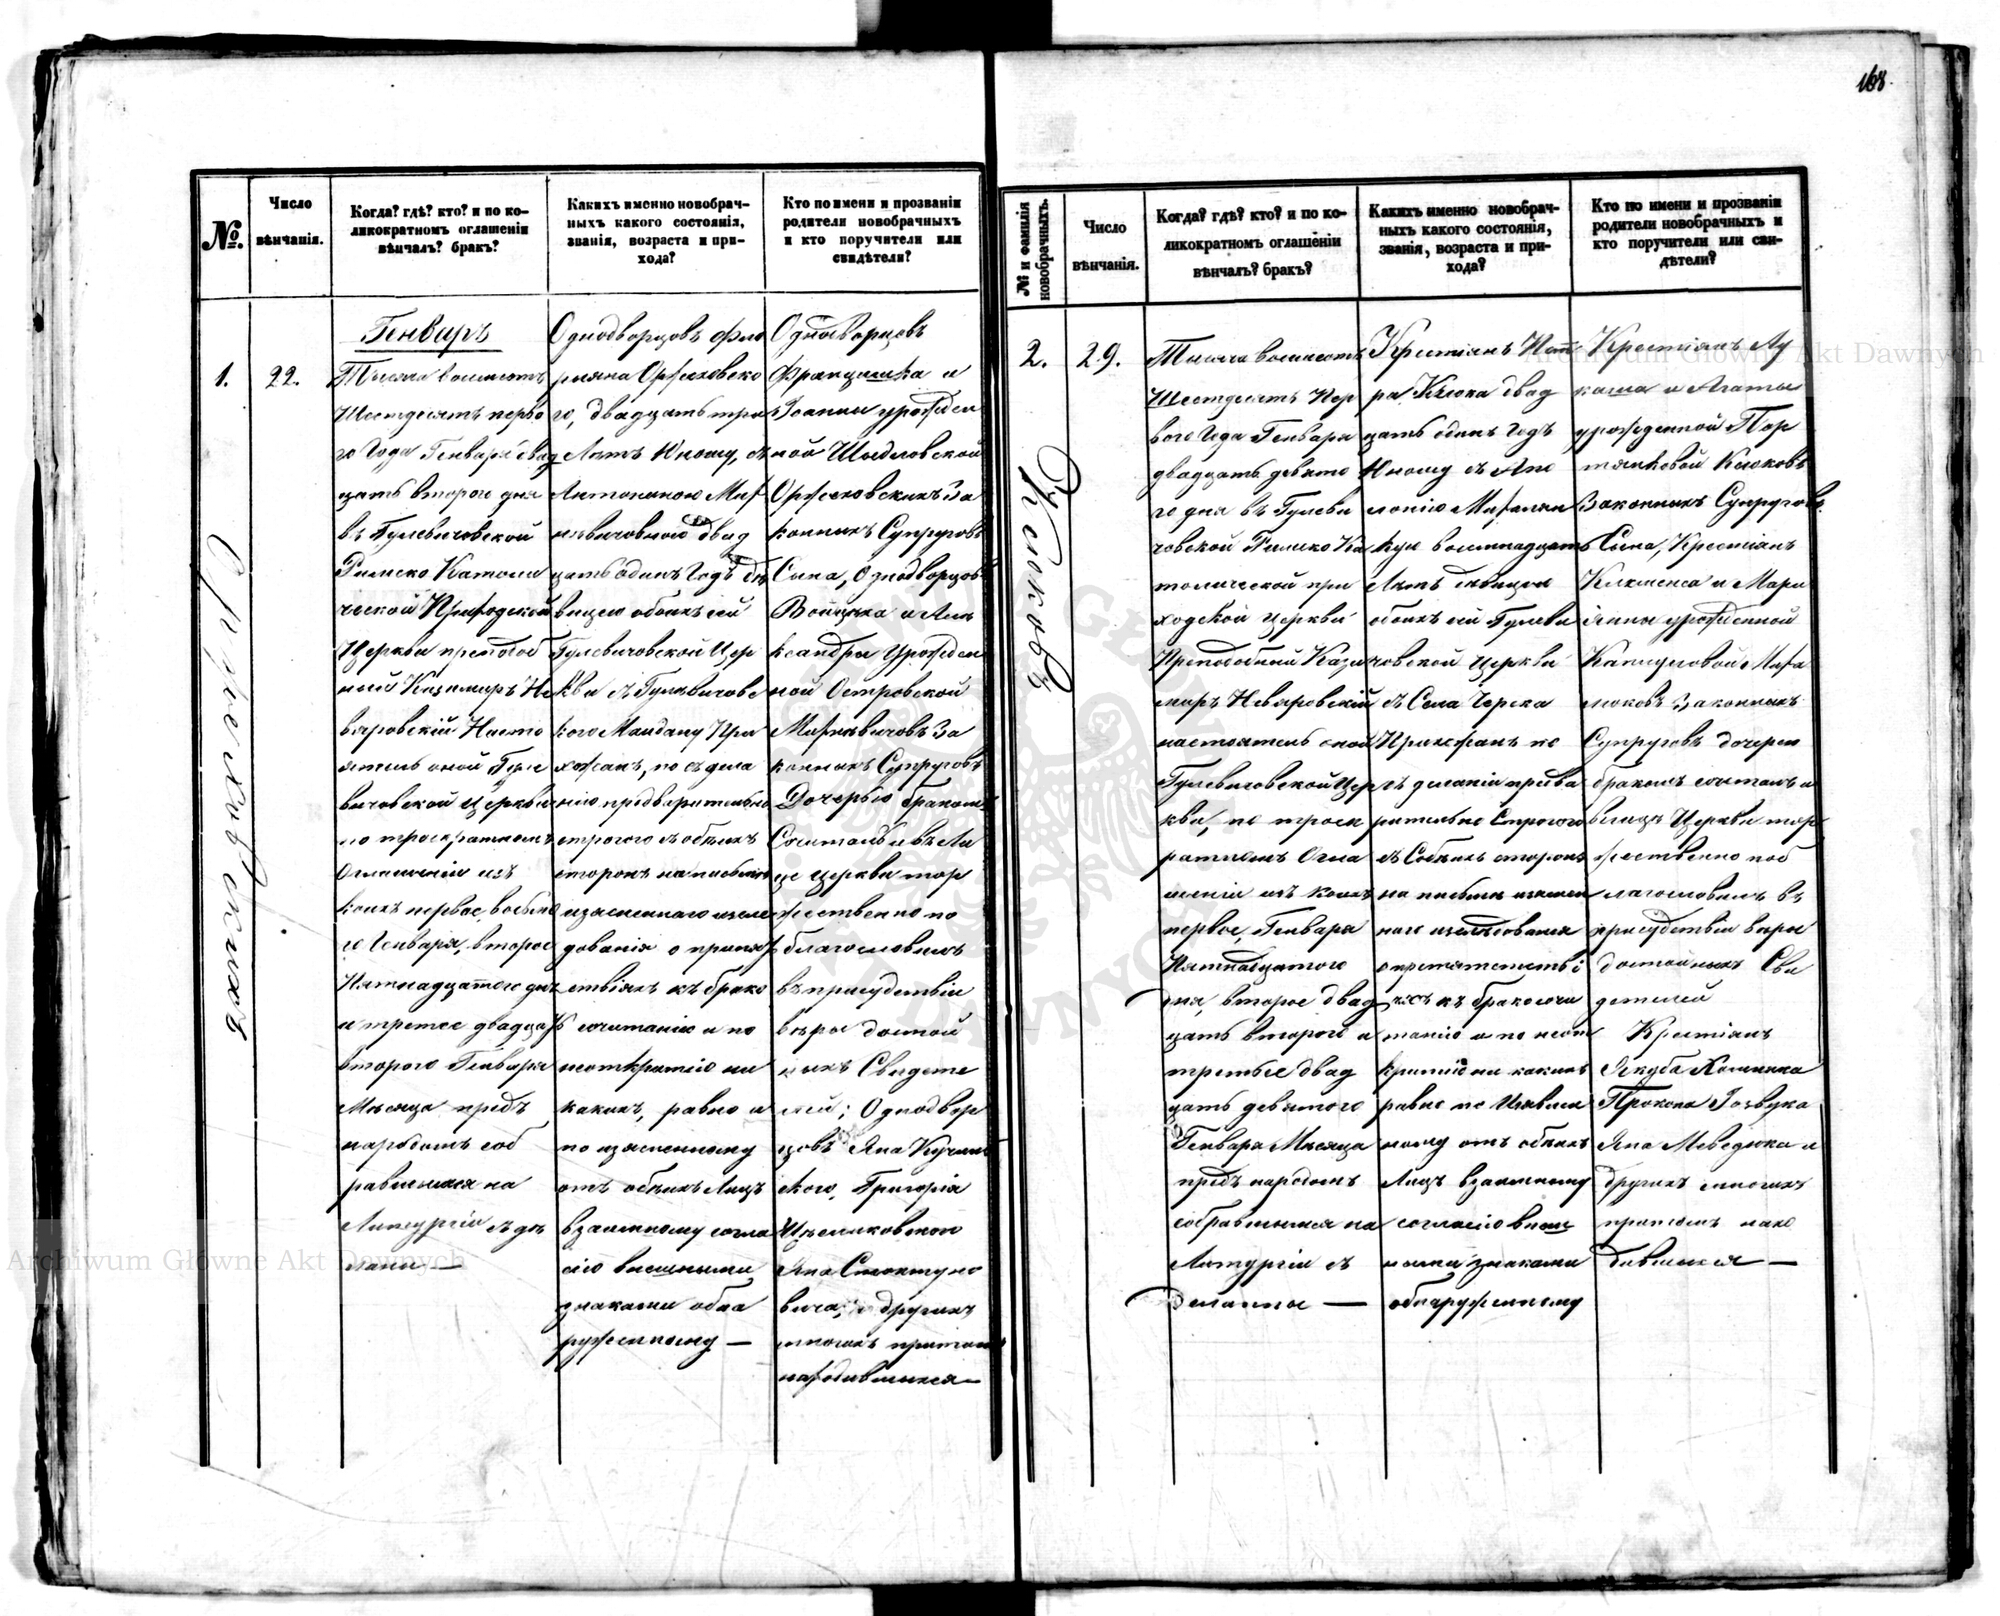 168.
№.
Число
вѣнчанія.
Когда? гдѣ? кто? и по ко-
ликократномъ оглашеніи
вѣнчалъ? бракъ?
Какихъ именно новобрач-
ныхъ какого состоянія,
званія, возраста и при-
хода?
Кто по имени и прозванію
родители новобрачныхъ
и кто поручители или
свидѣтели?
1.
22.
Генварь
Тысяча восемсотъ
Шестдесятъ перво
го Года Генваря двад
цать втораго дня
въ Гулевичовской
Римско Католи
ческой Приходской
Церкви преподоб
ный Казимиръ Не
вяровскій Насто
ятель оной Гуле
вичовской Церкви
по троекратномъ
Оглашеніи изъ
коихъ первое, восьмо
го Генваря, второе
Пятнадцатого дня
и третое двадцать
второго Генваря
Мѣсяца предъ
народомъ соб
равшимся на
Литургіи сдѣ
ланы —
Однодворцовъ Фло
рыяна Оржеховско
го, двадцать три
Лѣтъ Юношу, съ
Антониною Мих
невичовною двад
цать одинъ Годъ дѣ
вицею обоихъ сей
Гулевичовской Цер
кви съ Гулевичовс
кого Майдану При
хожанъ, по сдела
нію предварительно
строгого съ обѣихъ
сторонъ на письмѣ
изясненнаго изслѣ
дованія о препят
ствіяхъ къ брако
сочитанію и по
неоткрытію ни
какихъ, равно и
по изясненному
отъ обѣихъ Лицъ
взаимному согла
сію внешными
знаками обна
руженному —
Однодворцовъ
Францишка и
Іоанны урожден
ной Шидловской
Оржеховскихъ За
конныхъ Супруговъ
Сына, Однодворцовъ
Войцѣха и Але
ксандры Урожден
ной Островской
Михневичовъ За
конныхъ Супруговъ
Дочерью бракомъ
Сочиталъ и въ Ли
це Церкви тор
жественно по
благословилъ
въ присудствіи
вѣры достой
ныхъ Свидете
лей; Однодвор
цовъ Яна Кучинс
кого, Григорія
Яна
вича, и другихъ
многихъ притомъ
находившихся —
№ и фамилія
новобрачныхъ.
Число
вѣнчанія.
Когда? гдѣ? кто? и по ко-
ликократномъ оглашеніи
вѣнчалъ? бракъ?
Какихъ именно новобрач-
ныхъ какого состоянія,
званія, возраста и при-
хода?
Кто по имени и прозванію
родители новобрачныхъ и
кто поручители или сви-
дѣтели?
2.
29.
Клюковъ
Тысяча восемсотъ
Шестдесятъ Пер
вого Года Генваря
двадцать девято
го дня въ Гулеви
човской Римско Ка
толической при
ходской Церкви
Преподобный Кази
миръ Невяровскій
настоятель оной
Гулевичовской Цер
кви, по троек
ратномъ Огла
шеніи изъ коихъ
первое, Генваря
Пятнадцатого
дня, второе двад
цать второго и
третье двад
цать девятого
Генваря Мѣсяца
предъ народомъ
собравшимся на
Литургіи с
деланны —
Крестіянъ
ра Клюка двад
цать одинъ Годъ
Юношу съ Апо
лонію
восемнадцать
Лѣтъ дѣвицею
обоихъ сей Гулеви
човской Церкви
съ Села Черска
Прихожанъ по
зделаніи предва
рительно Строгого
съ Обѣихъ сторонъ
на письмѣ изяснен
ного изслѣдованія
о препятстві
яхъ къ бракосочи
танію и по неот
крытію ни какихъ
равно по Изъяснен
ному отъ обѣихъ
Лицъ взаимному
согласію внеш
ными знаками
обнаруженному
Крестіянъ Лу
каша и Агаты
урожденной Пор
тянковой Клюковъ
Законныхъ Супруговъ
Сына, Крестіянъ
Клеменса и Мари
янны урожденной
Супруговъ дочерею
бракомъ сочиталъ и
влицѣ Церкви тор
жественно поб
лагословилъ въ
присудствіи веры
достойныхъ Сви
детелей
Крестіянъ
Якуба
Прокопа
Яна Медведюка и
другихъ многихъ
притомъ нахо
дившихся —